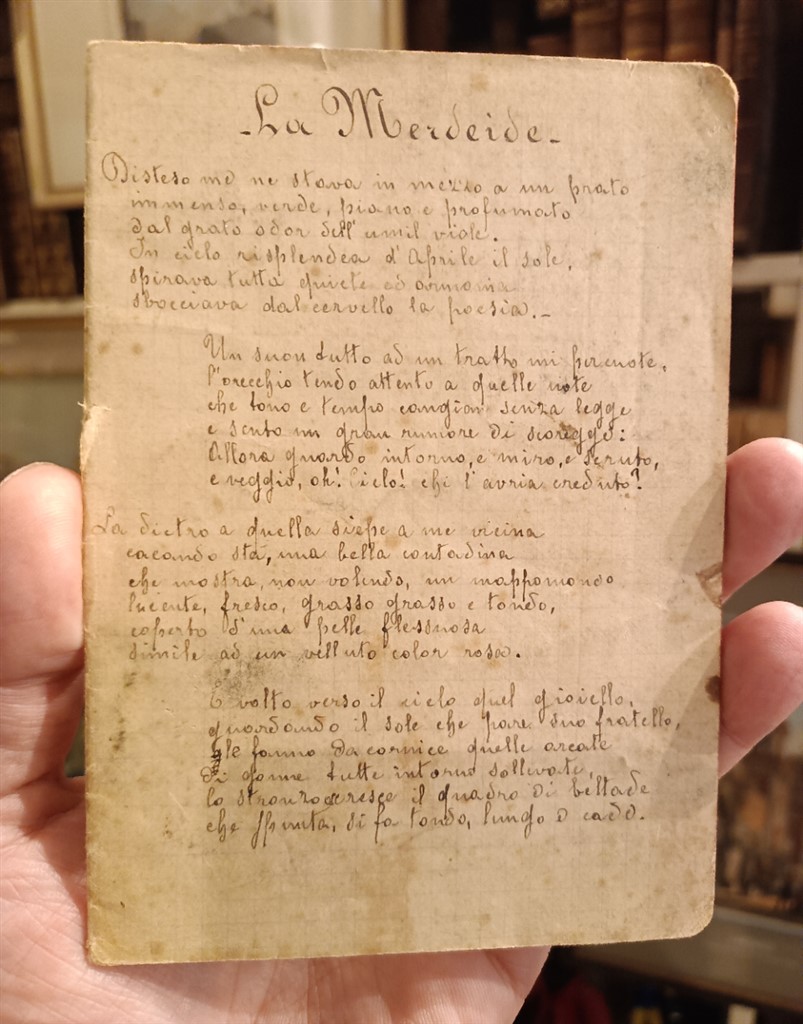 - La Merdeide -
Disteso me ne stava in mezzo a un prato
immenso, verde, piano e profumato
dal grato odor dell'umil viole.
In cielo risplendea d'Aprile il sole,
spirava tutto quiete ed armonia
sbocciava dal cervello la poesia. -
Un suon tutto ad un tratto mi percuote,
l'orecchio tendo attento a quelle note
che tono e tempo cangian senza legge
e sento un gran rumore di scoregge:
Allora guardo intorno, e miro, e scruto,
e veggio, oh! Cielo! chi l'avria creduto?
La dietro a quella siepe a me vicina
cacando sta, una bella contadina
che mostra, non volendo, un mappamondo
lucente, fresco, grasso grasso e tondo,
coperto d'una pelle flessuosa
simile ad un velluto color rosa.
È volto verso il cielo quel gioiello,
guardando il sole che pare suo fratello,
le fanno da cornice quelle arcate
di gonne tutte intorno sollevate,
lo stronzo accresce il quadro di beltade
che spunta, si fa tondo, lungo e cade.